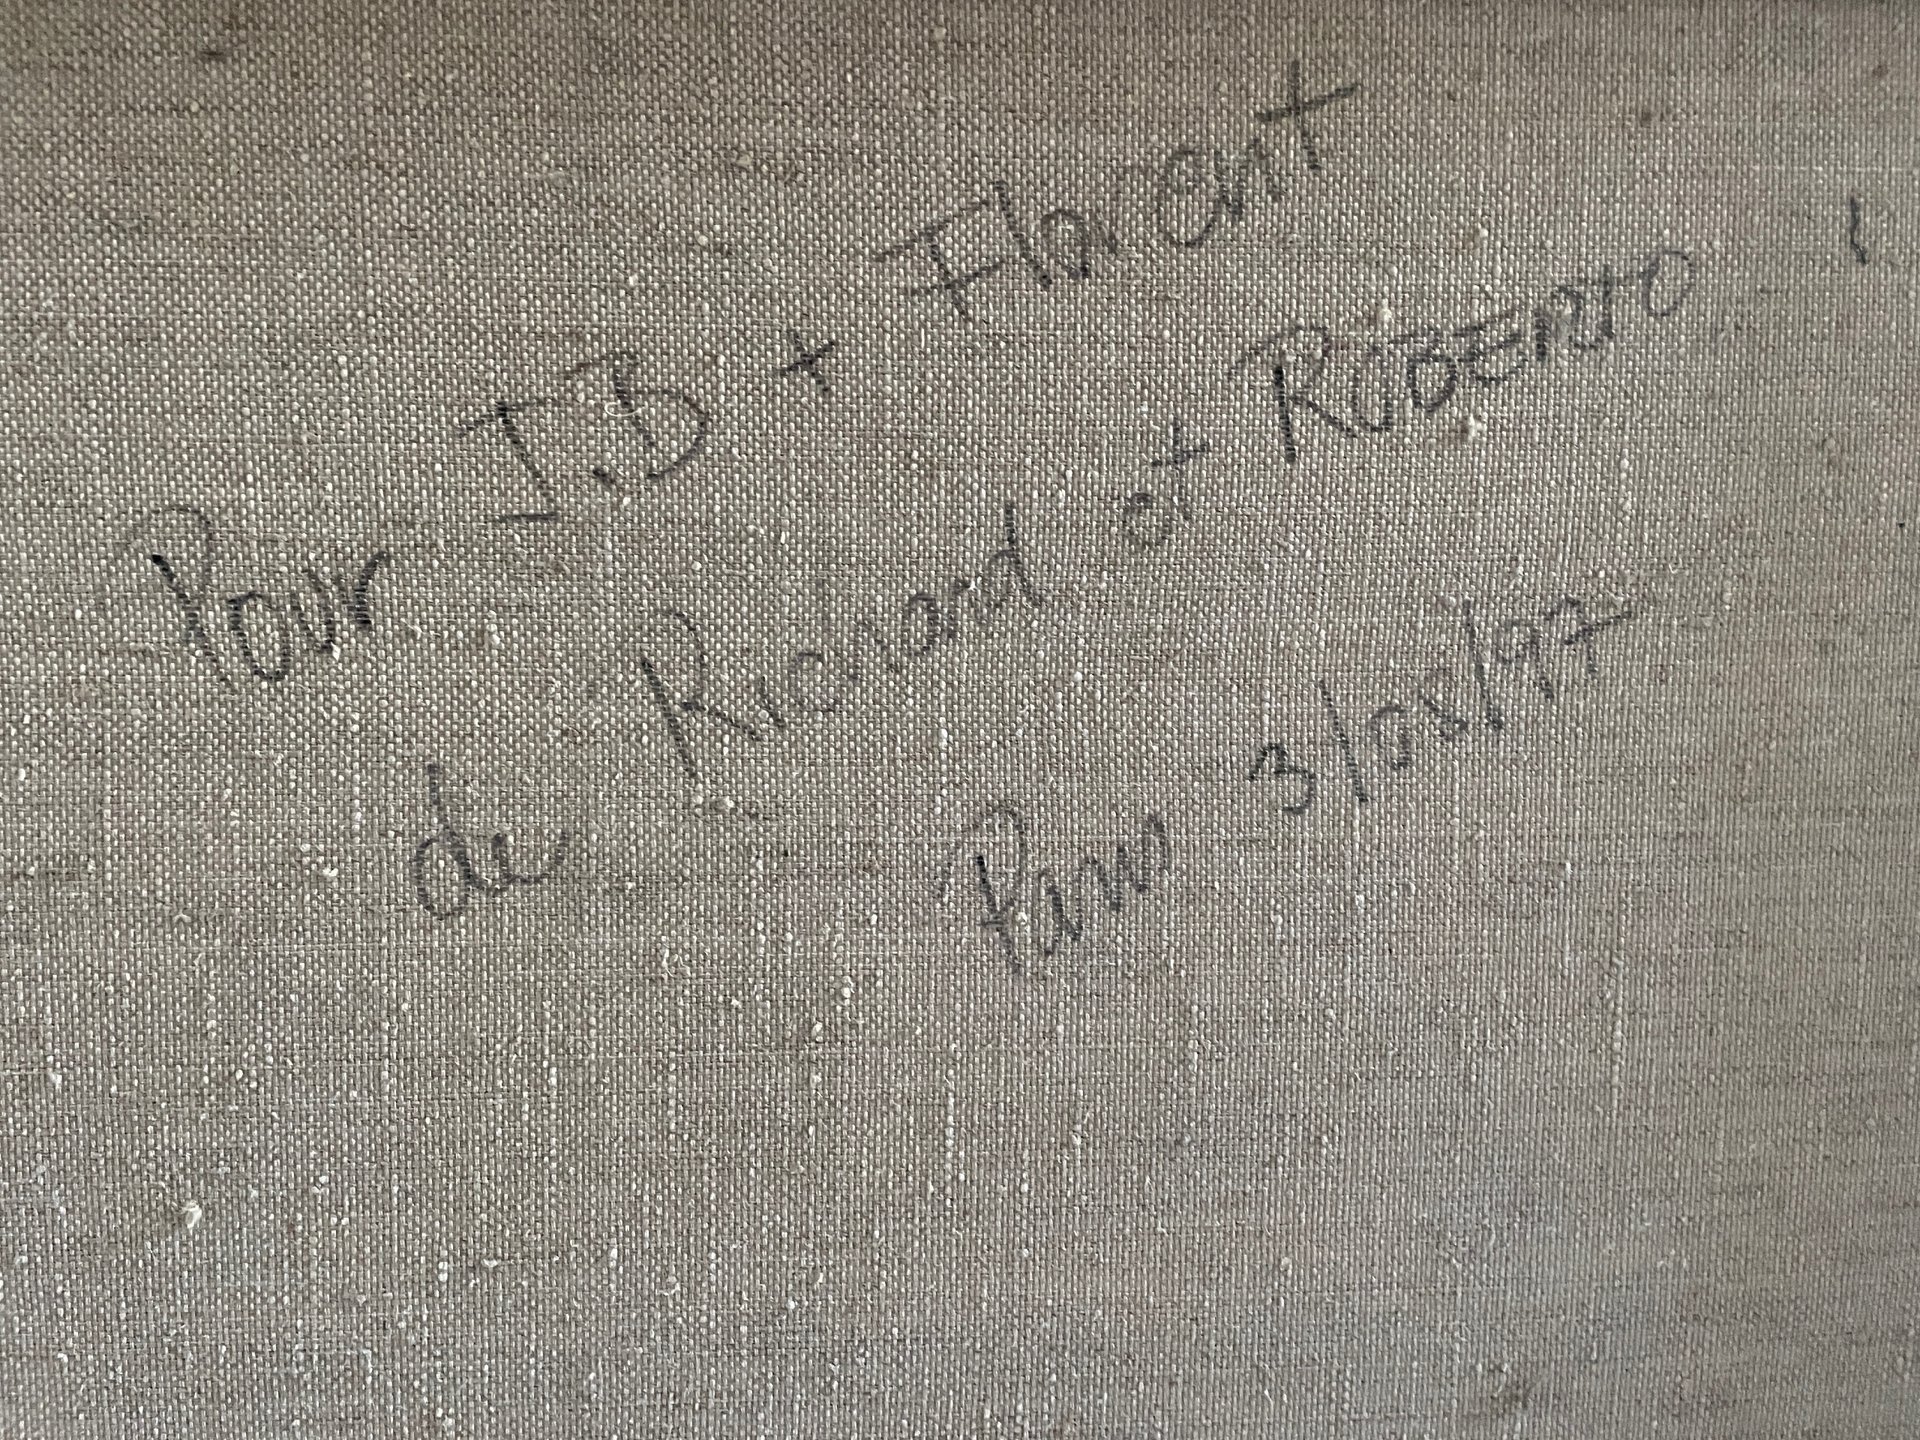 Pour J.B + Florent
de Richard et ROBERTO
Paris 3/05/97